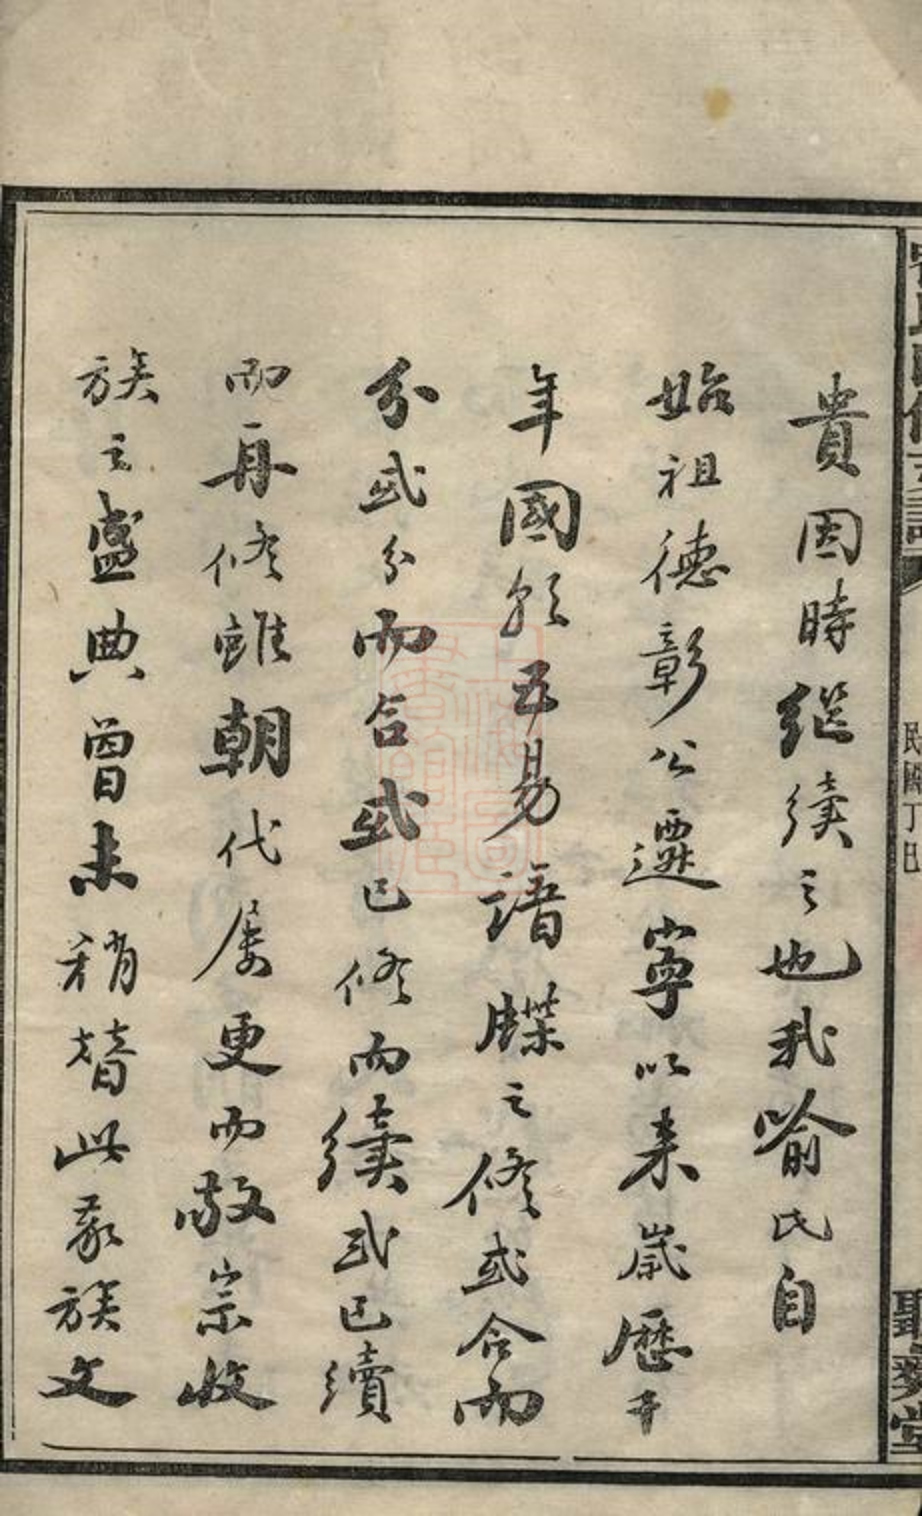 貴因時繼續之也我喻氏自
始祖德彰公遷寧以来歲歷千
年國朝五易譜牒之修或合而
分或分而合或已修而續或已續
而再修雖朝代屡更而敬宗收
族之盛典曾未稍替此家族文
民國丁巳
聚堂